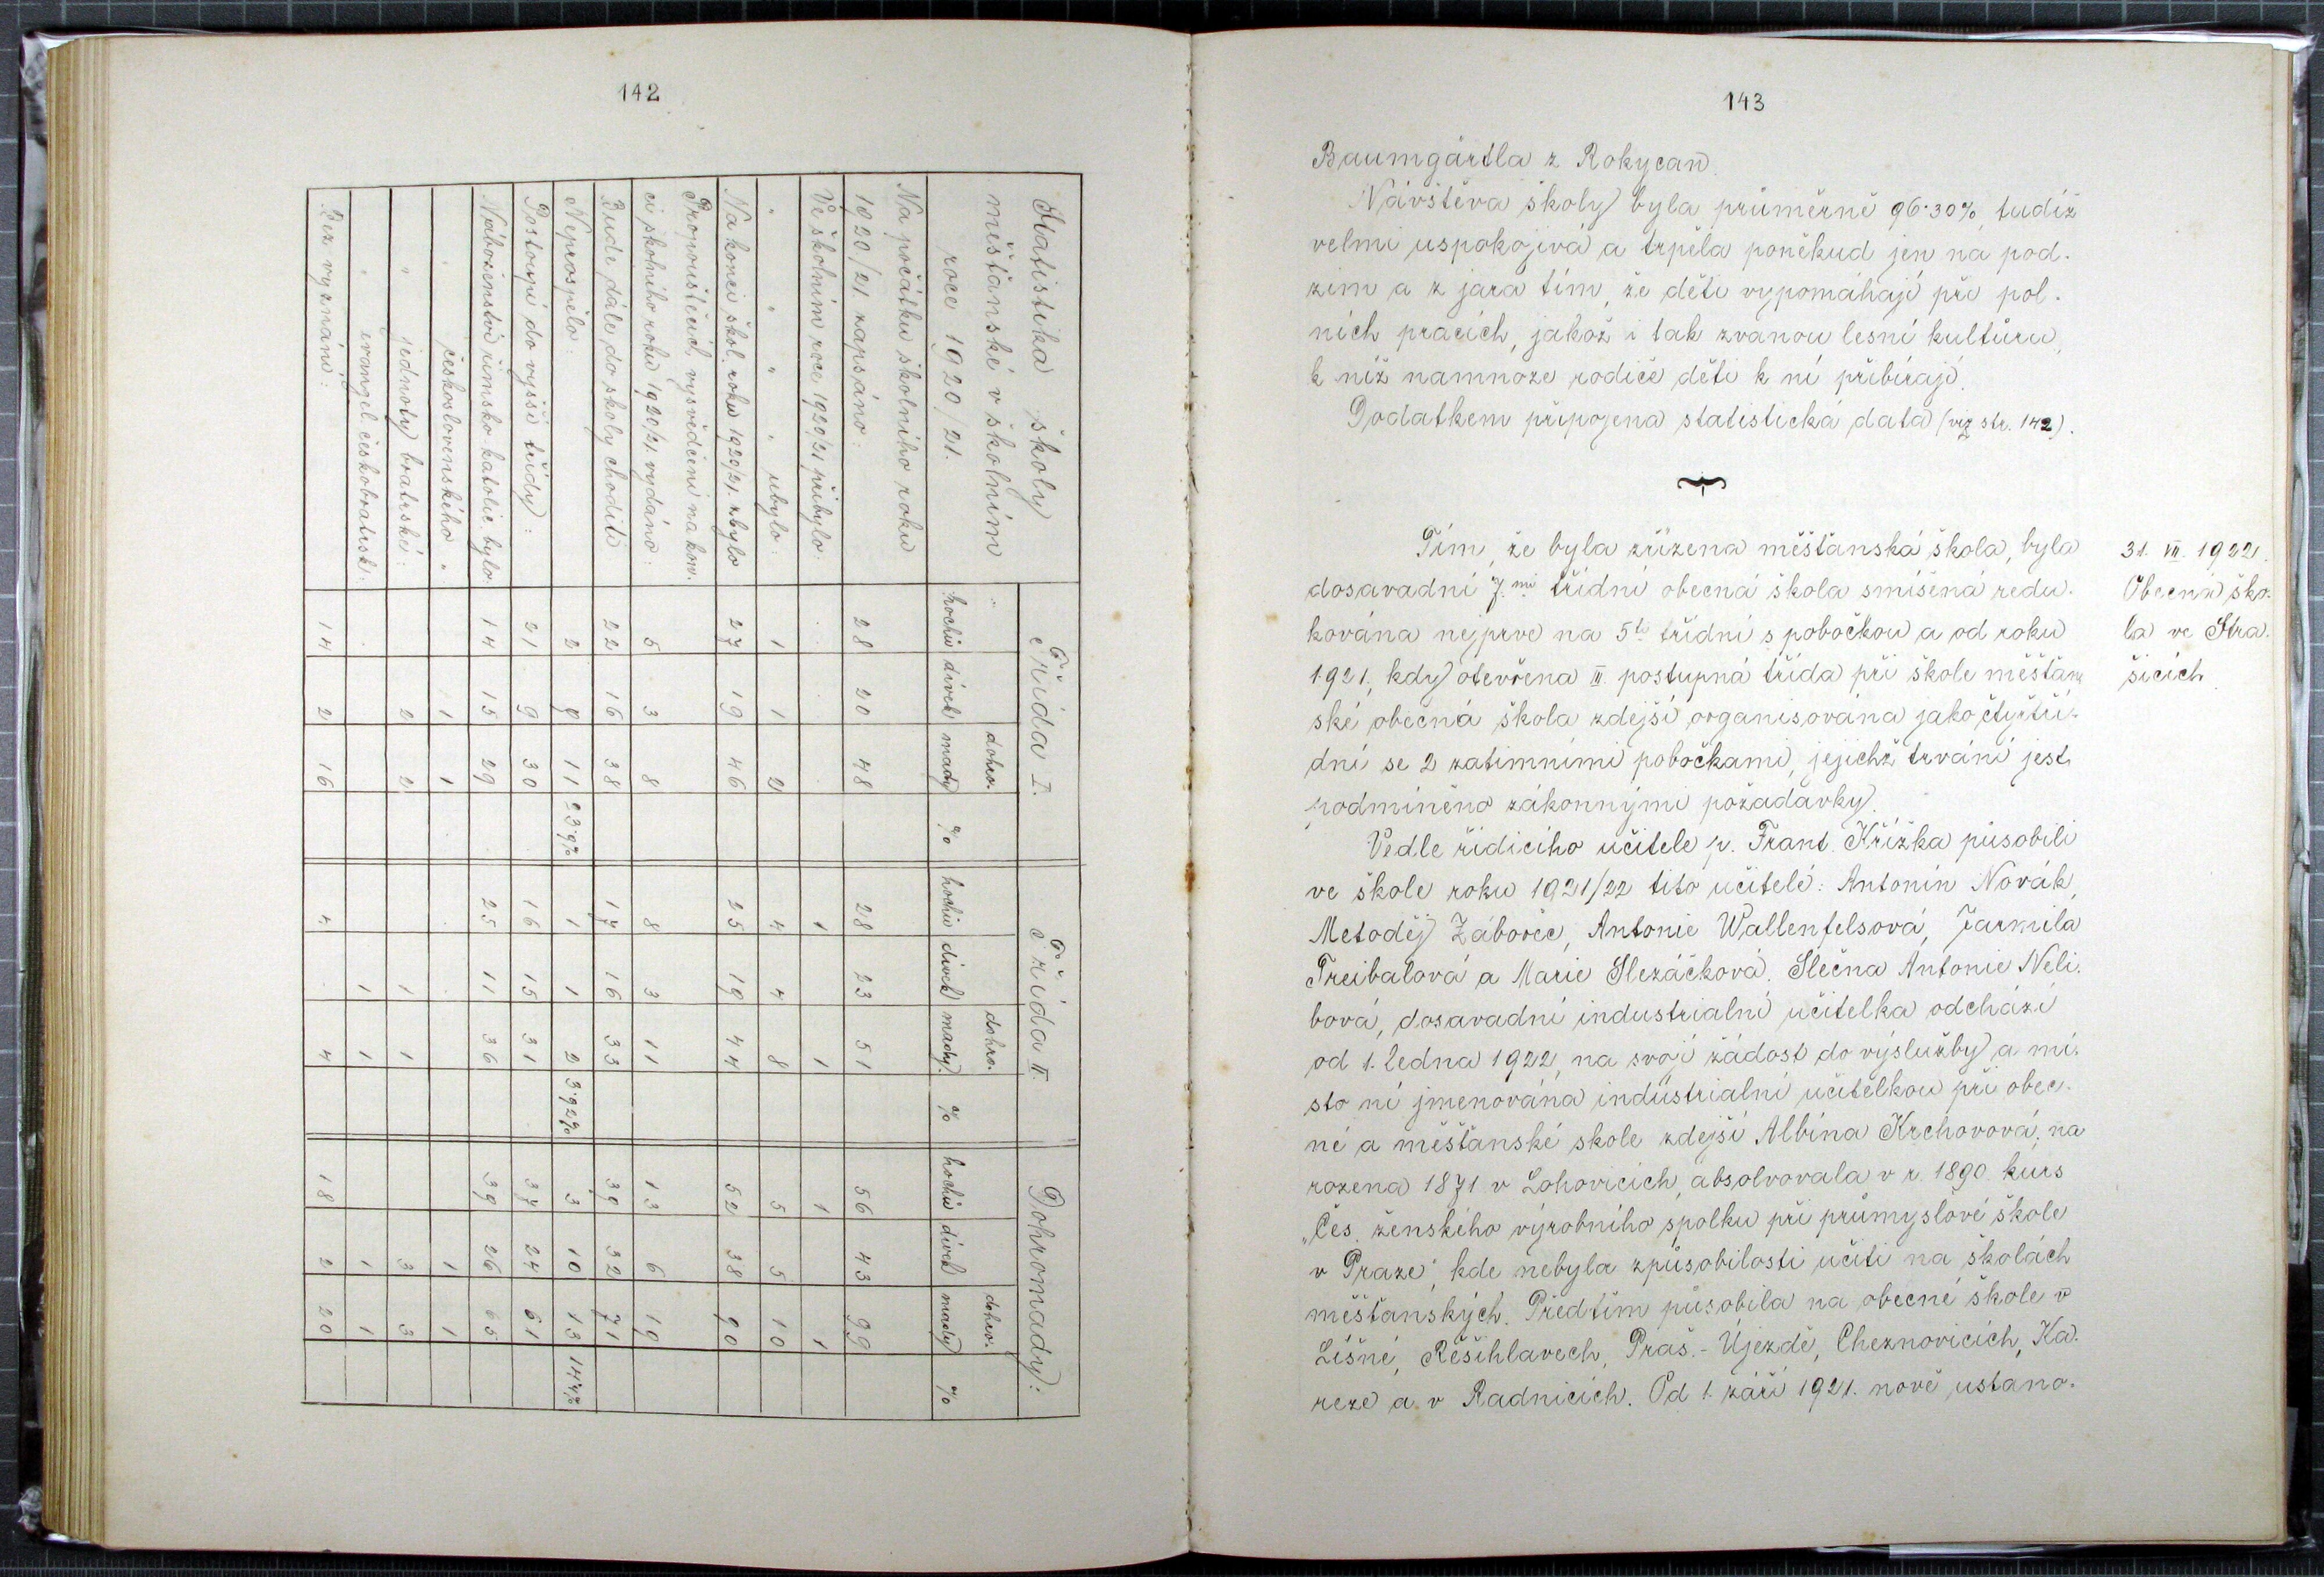 142
Statistika školy
měšťanské v školním
roce 1920/21.
Třída I. Třída II. Dohromady:
hochů dívek dohro- mady % hochů dívek dohro- mady % hochů dívek dohro- mady %
Na počátku školního roku
1920/21 zapsáno: 28 20 48 28 23 51 56 43 99
Ve školním roce 1920/21 přibylo: 1 1 1 1
" " " " ubylo: 1 1 2 4 4 8 5 5 10
Na konci škol. roku 1920/21. zbylo 27 19 46 25 19 44 52 38 90
Propouštěcích vysvědčení na kon-
ci školního roku 1920/21. vydáno: 5 3 8 8 3 11 13 6 19
Bude dále do školy choditi 22 16 38 17 16 33 39 32 71
Neprospělo: 2 9 11 23·9% 1 1 2 3·92% 3 10 13 14·4%
Postoupí do vyšší třídy: 21 9 30 16 15 31 37 24 61
Náboženství římsko katolic. bylo 14 15 29 25 11 36 39 26 65
" československého " 1 1 1 1
" jednoty bratrské: 2 2 1 1 3 3
" evangel. českobratrsk: 1 1 1 1
Bez vyznání: 14 2 16 4 4 18 2 20
143
Baumgärtla z Rokycan.
Návštěva školy byla průměrně 96·30%, tudíž
velmi uspokojivá a trpěla poněkud jen na pod-
zim a z jara tím, že děti vypomáhají při pol-
ních pracích, jakož i tak zvanou lesní kulturu,
k níž namnoze rodiče děti k ní přibírají.
Dodatkem připojena statistická data (viz str. 142).
Tím, že byla zřízena měšťanská škola, byla
dosavadní 7.mi třídní obecná škola smíšená redu-
kována nejprve na 5ti třídní s pobočkou a od roku
1921, kdy otevřena III. postupná třída při škole měšťan-
ské obecná škola zdejší organisována jako čtyřtří-
dní se 2 zatimními pobočkami, jejichž trvání jest
podmíněno zákonnými požadavky.
Vedle řídícího učitele p. Frant. Křížka působili
ve škole roku 1921/22 tito učitelé: Antonín Novák,
Metoděj Zábořec, Antonie Wallenfelsová, Jarmila
Treibalová a Marie Slezáčková. Slečna Antonie Neli-
bová, dosavadní industrialní učitelka odchází
od 1. ledna 1922, na svojí žádost do výslužby a mí-
sto ní jmenována industrialní učitelkou při obec-
né a měšťanské škole zdejší Albína Krchovová, na-
rozena 1871 v Lohovicích, absolvovala v r. 1890 kurs
„Čes. ženského výrobního spolku při průmyslové škole
v Praze", kde nebyla způsobilosti učiti na školách
měšťanských. Předtím působila na obecné škole v
Líšné, Řešihlavech, Praš.-Újezdě, Cheznovicích, Ka-
reze a v Radnicích. Od 1. září 1921. nově ustano-
31. VII. 1922.
Obecná ško-
la ve Stra-
šicích